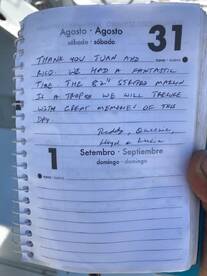 Agosto · Agosto
sábado · sábado
31
THANK YOU JUAN AND
RICO. WE HAD A FANTASTIC
TIME THE 82" STRIPED MARLIN
IS A TROPHY WE WILL TREASURE
WITH GREAT MEMORIES OF THIS
DAY
Teddy,
Lloyd &
1
Setembro · Septiembre
domingo · domingo